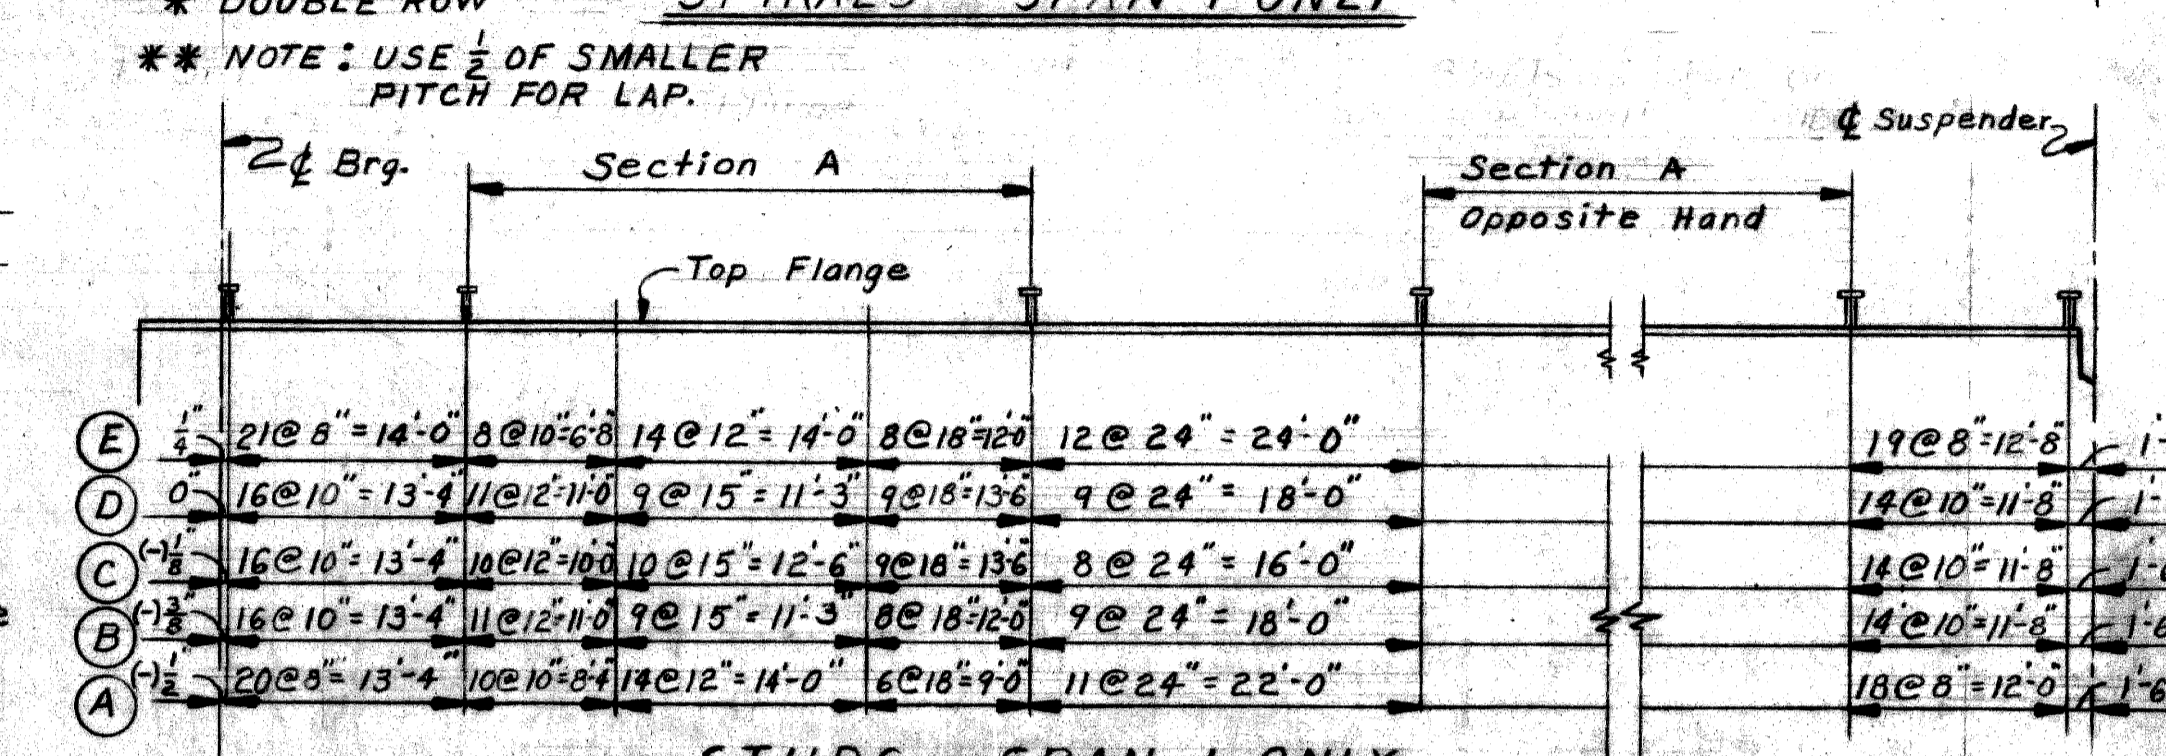 * DOUBLE ROW
SPIRALS - SPAN 1 ONLY
** NOTE: USE 1/2 OF SMALLER
PITCH FOR LAP.
℄ Brg.
Section A
Section A
Opposite Hand
℄ Suspender
Top Flange
E 1/4" 21@8"=14'-0" 8@10"=6'-8" 14@12"=14'-0" 8@18"=12'-0" 12@24"=24'-0" 19@8"=12'-8" 1'-
D 0" 16@10"=13'-4" 11@12"=11'-0" 9@15"=11'-3" 9@18"=13'-6" 9@24"=18'-0" 14@10"=11'-8" 1'-
C (-)1/8" 16@10"=13'-4" 10@12"=10'-0" 10@15"=12'-6" 9@18"=13'-6" 8@24"=16'-0" 14@10"=11'-8" 1'-6
B (-)3/8" 16@10"=13'-4" 11@12"=11'-0" 9@15"=11'-3" 8@18"=12'-0" 9@24"=18'-0" 14@10"=11'-8" 1'-6
A (-)1/2" 20@8"=13'-4" 10@10"=8'-4" 14@12"=14'-0" 6@18"=9'-0" 11@24"=22'-0" 18@8"=12'-0" 1'-6
STUDS - SPAN 1 ONLY